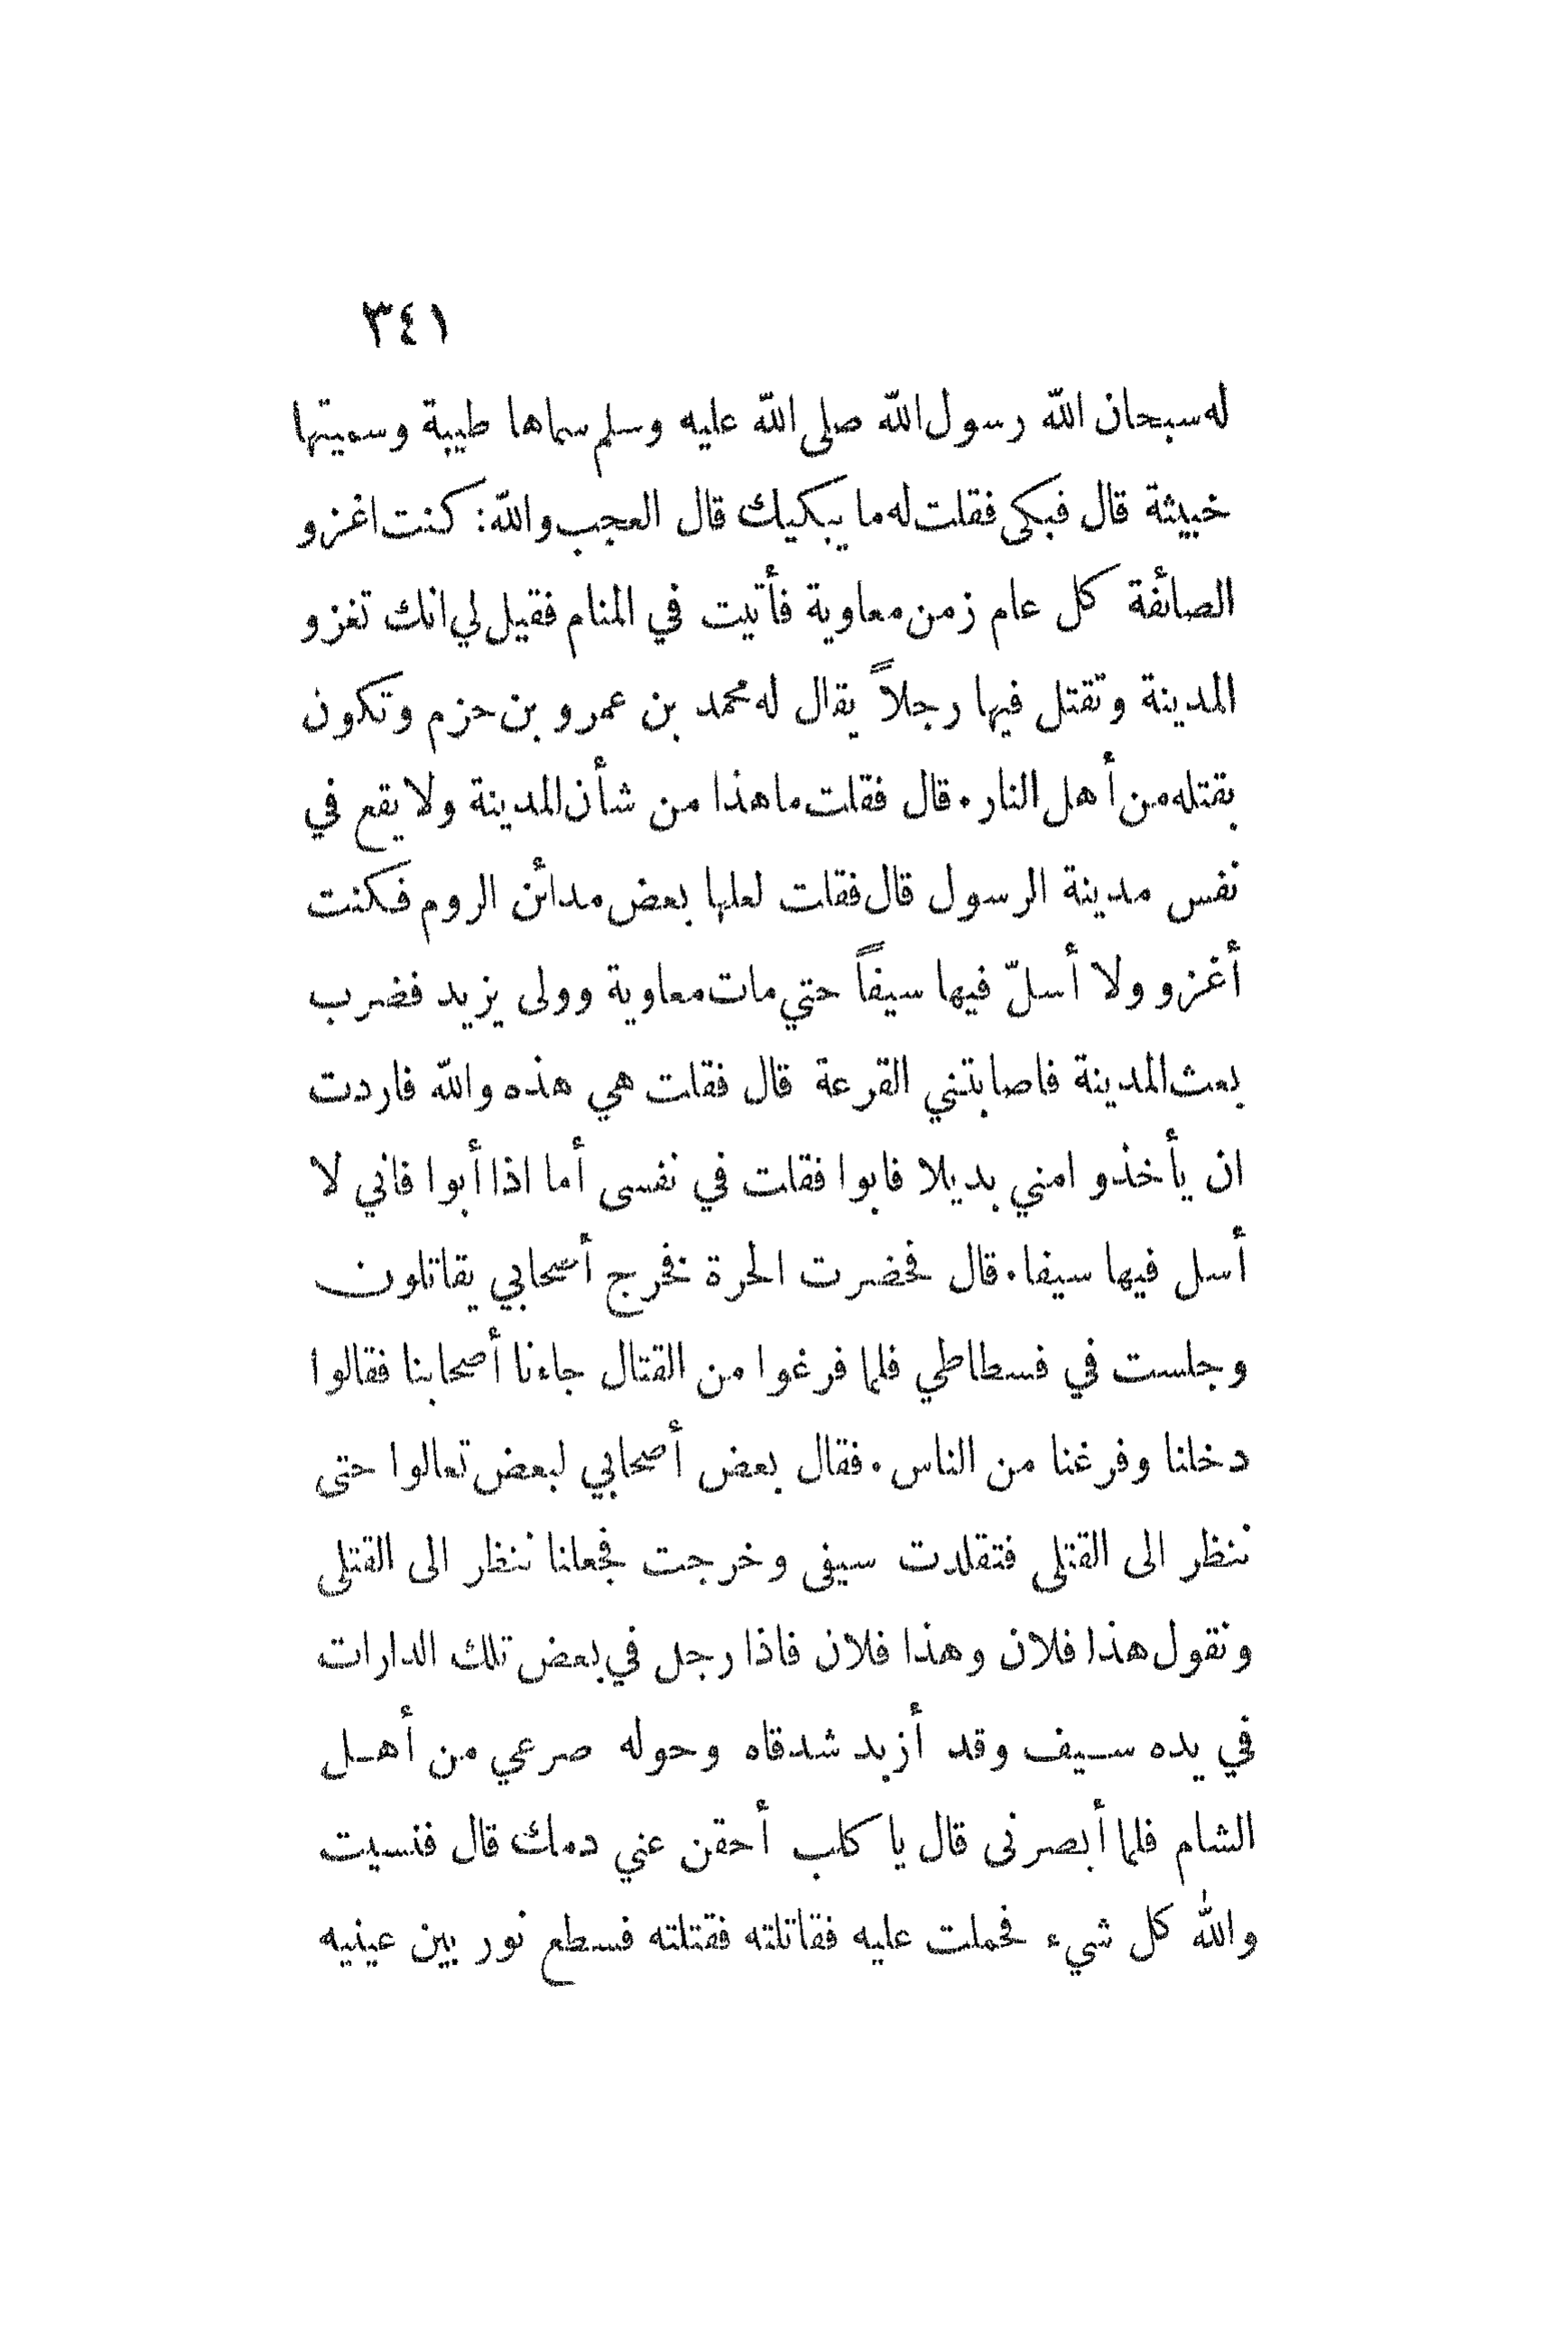 ٣٤١
له سبحان الله رسول الله صلى الله عليه وسلم سماها طيبة وسميتها
خبيثة قال فبكى فقلت له ما يبكيك قال العجب والله: كنت اغزو
الصائفة كل عام زمن معاوية فأتيت في المنام فقيل لي انك تغزو
المدينة وتقتل فيها رجلاً يقال له محمد بن عمرو بن حزم وتكون
بقتله من أهل النار. قال فقلت ما هذا من شأن المدينة ولا يقع في
نفس مدينة الرسول قال فقلت لعلها بعض مدائن الروم فكنت
أغزو ولا أسلّ فيها سيفاً حتي مات معاوية وولى يزيد فضرب
بعث المدينة فاصابتني القرعة قال فقلت هي هذه والله فاردت
ان يأخذو امني بديلا فابوا فقلت في نفسى أما اذا أبوا فاني لا
أسل فيها سيفا. قال فحضرت الحرة فخرج أصحابي يقاتلون
وجلست في فسطاطي فلما فرغوا من القتال جاءنا أصحابنا فقالوا
دخلنا وفرغنا من الناس. فقال بعض أصحابي لبعض تعالوا حتى
ننظر الى القتلى فتقلدت سيفى وخرجت فجعلنا ننظر الى القتلى
ونقول هذا فلان وهذا فلان فاذا رجل في بعض تلك الدارات
في يده سيف وقد أزبد شدقاه وحوله صرعي من أهل
الشام فلما أبصرنى قال يا كلب أحقن عني دمك قال فنسيت
والله كل شيء فحملت عليه فقاتلته فقتلته فسطع نور بين عينيه